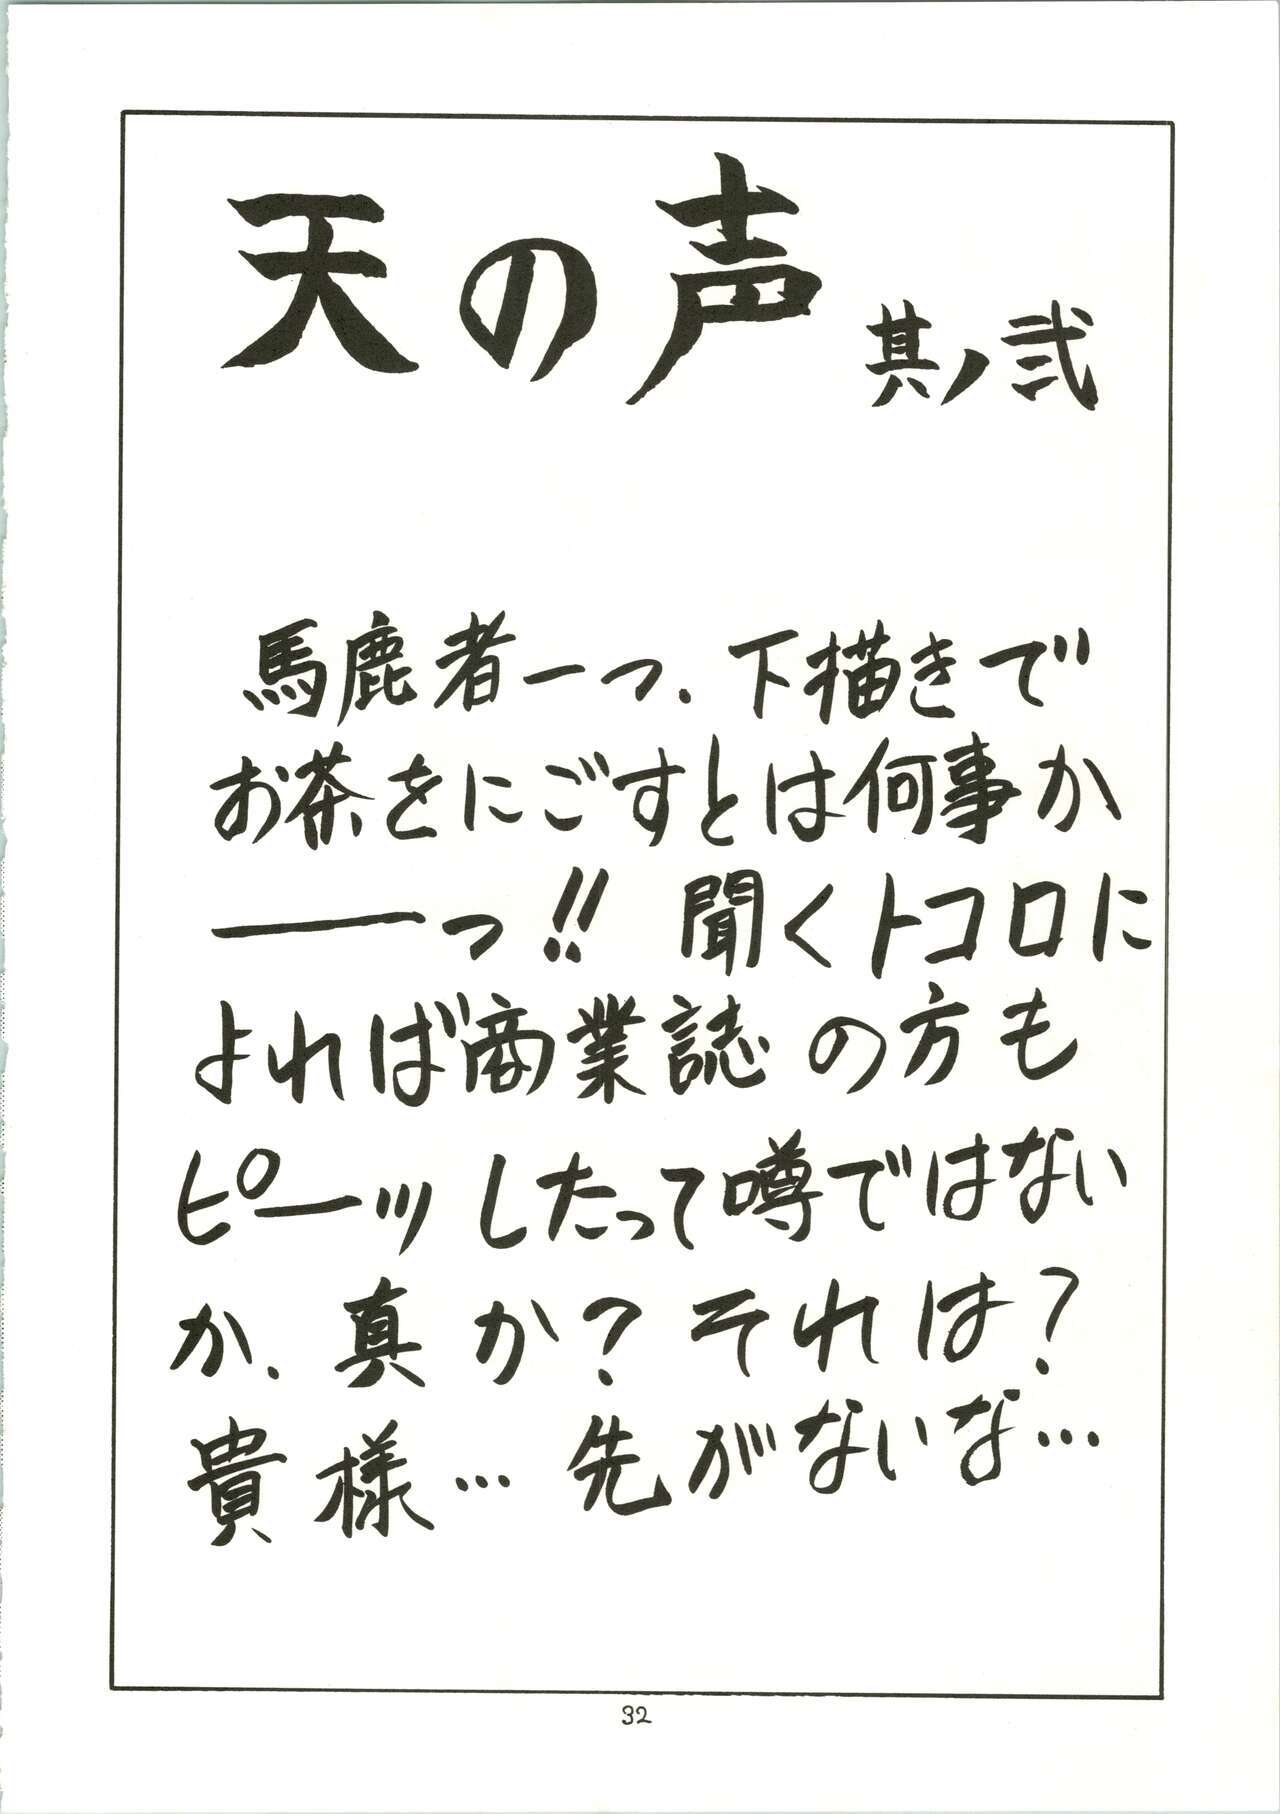 天の声 其ノ弐
馬鹿者ーっ、下描きで
お茶をにごすとは何事か
―――っ!! 聞くトコロに
よれば商業誌の方も
ピーッしたって噂ではない
か、真か？それは？
貴様…先がないな…
32